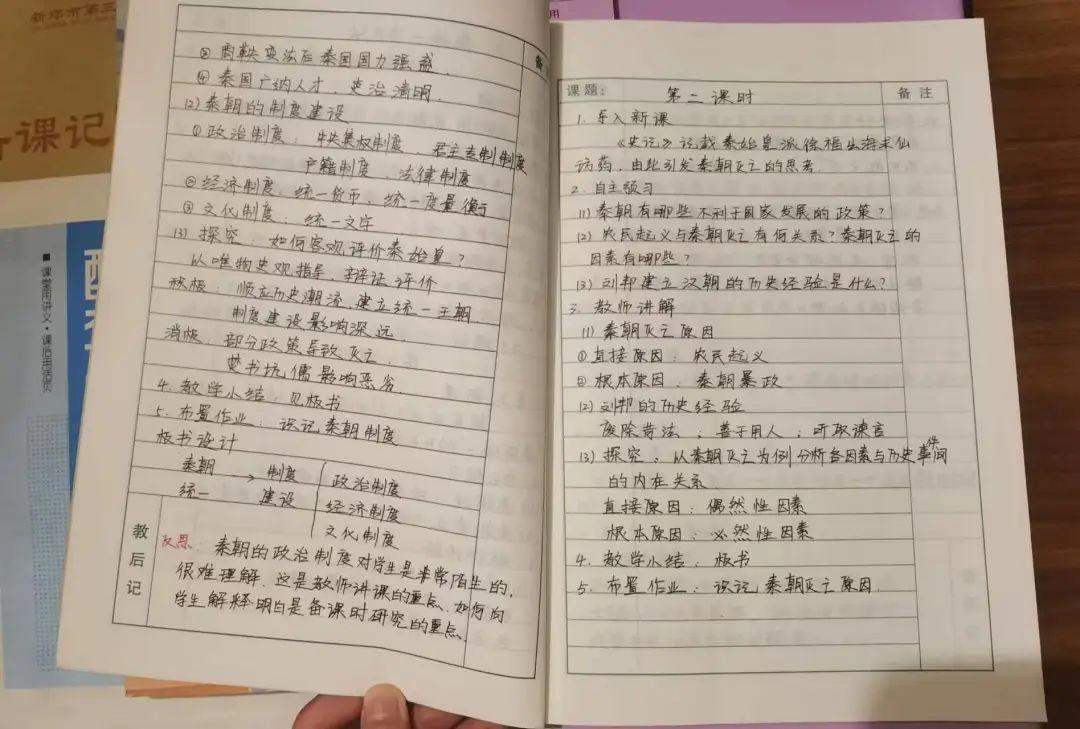 新郑市第三
备课记
■ 课堂用讲义·课后用活页
用
备
③ 商鞅变法后秦国国力强盛.
④ 秦国广纳人才，吏治清明.
(2) 秦朝的制度建设
① 政治制度：中央集权制度、君主专制制度
户籍制度 法律制度
② 经济制度：统一货币、统一度量衡
③ 文化制度：统一文字
(3) 探究：如何客观评价秦始皇？
以唯物史观指导，辩证评价
积极：顺应历史潮流，建立统一王朝
制度建设影响深远.
消极：部分政策导致灭亡.
焚书坑儒影响恶劣.
4. 教学小结：见板书
5. 布置作业：识记秦朝制度
板书设计
秦朝 → 制度 政治制度
统一 建设 经济制度
文化制度
教后记
反思：秦朝的政治制度对学生是非常陌生的,
很难理解.这是教师讲课的重点.如何向
学生解释明白是备课时研究的重点.
课题： 第二课时 备注
1. 导入新课
《史记》记载秦始皇派徐福出海求仙
药，由此引发秦朝灭亡的思考.
2. 自主预习
(1) 秦朝有哪些不利于国家发展的政策？
(2) 农民起义与秦朝灭亡有何关系？秦朝灭亡的
因素有哪些？
(3) 刘邦建立汉朝的历史经验是什么？
3. 教师讲解
(1) 秦朝灭亡原因
① 直接原因：农民起义
② 根本原因：秦朝暴政
(2) 刘邦的历史经验
废除苛法；善于用人；听取谏言
(3) 探究：以秦朝灭亡为例分析各因素与历史事件间
的内在关系
直接原因：偶然性因素
根本原因：必然性因素
4. 教学小结：板书
5. 布置作业：识记秦朝灭亡原因.